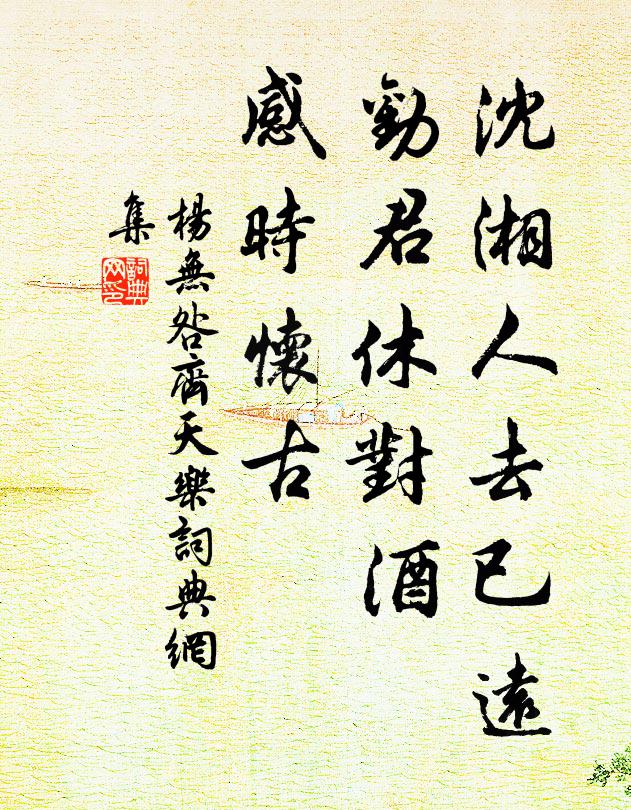 沈湘人去已遠
勸君休對酒
感時懷古
楊無咎齊天樂詞典網
集
詞典
网印